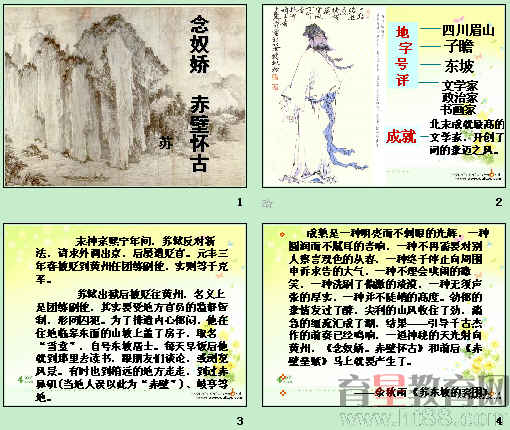 念奴娇 赤壁怀古
苏
1
地 四川眉山
字 子瞻
号 东坡
评 文学家
政治家
书画家
成就 北宋成就最高的
文学家，开创了
词的豪迈之风。
2
宋神宗熙宁年间，苏轼反对新
法，请求外调出京，后屡遭贬官。元丰三
年春被贬到黄州任团练副使，实则等于充
军。
苏轼出狱后被贬往黄州，名义上
是团练副使，其实要受地方官员的监督管
制，形同囚犯。为了排遣内心郁闷，他在
住地临皋东面的山坡上盖了房子，取名
“当堂”，自号东坡居士。每天早饭后他
就到那里去读书，跟朋友们谈论，或浏览
风景。有时也到稍远的地方走走，到过赤
鼻矶(当地人误以此为“赤壁”)、岐亭等
地。
3
成熟是一种明亮而不刺眼的光辉，一种
圆润而不腻耳的音响，一种不再需要对别
人察言观色的从容，一种终于停止向周围
申诉求告的大气，一种不理会哄闹的微
笑，一种洗刷了偏激的淡漠，一种无须声
张的厚实，一种并不陡峭的高度。勃郁的
豪情发过了酵，尖利的山风收住了劲，湍
急的细流汇成了湖，结果——引导千古杰
作的前奏已经鸣响，一道神秘的天光射向
黄州，《念奴娇。赤壁怀古》和前后《赤
壁赋》马上就要产生了。
——余秋雨《苏东坡的突围》
4
育星教育网